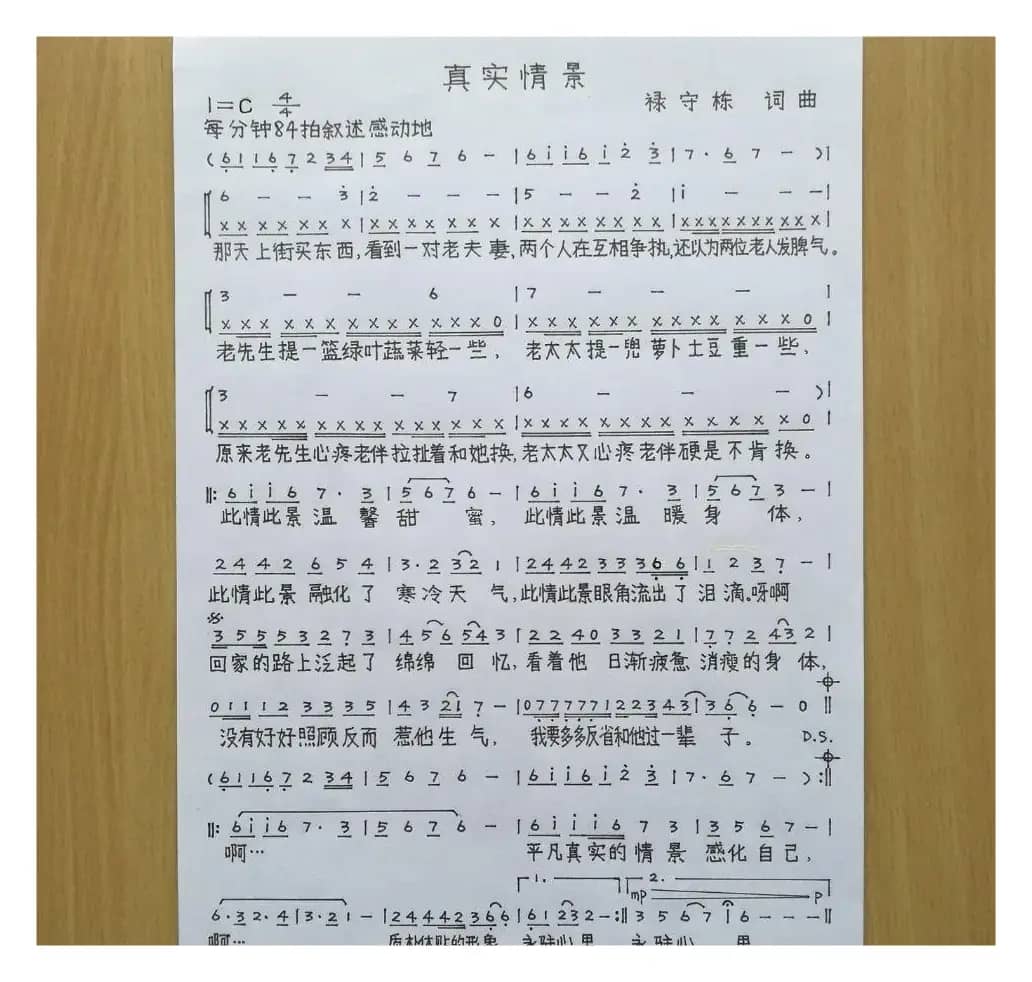 真实情景
1=C 4/4 禄守栋 词曲
每分钟84拍叙述感动地
(61167234|5676-|6i i6i2 3|7·67-)|
6--3|2---|5--2|i---|
xxxxxxx|xxxxxxx|xxxxxxx|xxxxxxxxxx|
那天上街买东西,看到一对老夫妻,两个人在互相争执,还以为两位老人发脾气。
3--6|7---|
xxx xxx xxxx xxx0|xxx xxx xxxx xxx0|
老先生提一篮绿叶蔬菜轻一些,老太太提一兜萝卜土豆重一些,
3--7|6---)|
xxxx xxxx xxxx xxx|xxxx xxxx xxxx x0|
原来老先生心疼老伴拉扯着和她换,老太太又心疼老伴硬是不肯换。
‖:6i i67·3|5676-|6i i67·3|5673-|
此情此景温馨甜蜜,此情此景温暖身体,
2442654|3·2321|2442333366|1237-|
此情此景融化了寒冷天气,此情此景眼角流出了泪滴。呀啊
35553273|456543|22403321|772432|
回家的路上泛起了绵绵回忆,看着他日渐疲惫消瘦的身体,
011123335|43217-|077777122343|366-0‖
没有好好照顾反而惹他生气,我要多多反省和他过一辈子。 D.S.
(61167234|5676-|6i i6i2 3|7·67-):‖
‖:6i i67·3|5676-|6i i i673|3567-|
啊… 平凡真实的情景感化自己,
1. 2. mp p
6·32·4|3·21-|24442366|61232-:‖3567i|6---‖
啊… 质朴体贴的形象 永驻心里 永驻心里